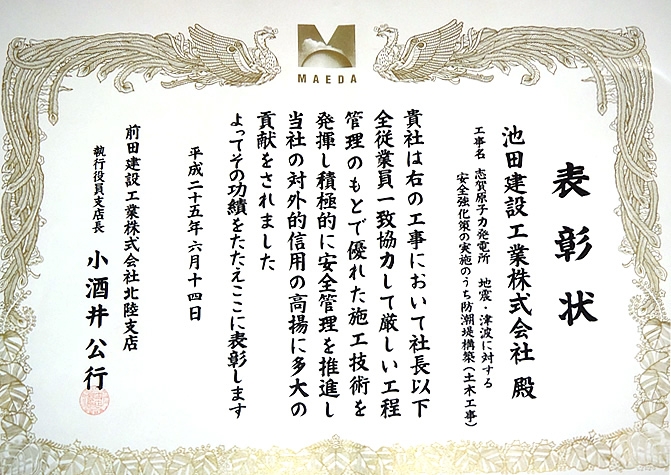 MAEDA
表彰状
池田建設工業株式会社 殿
工事名 志賀原子力発電所 地震・津波に対する
安全強化策の実施のうち防潮堤構築(土木工事)
貴社は右の工事において社長以下
全従業員一致協力して厳しい工程
管理のもとで優れた施工技術を
発揮し積極的に安全管理を推進し
当社の対外的信用の高揚に多大の
貢献をされました
よってその功績をたたえここに表彰します
平成二十五年六月十四日
前田建設工業株式会社北陸支店
執行役員支店長 小酒井公行